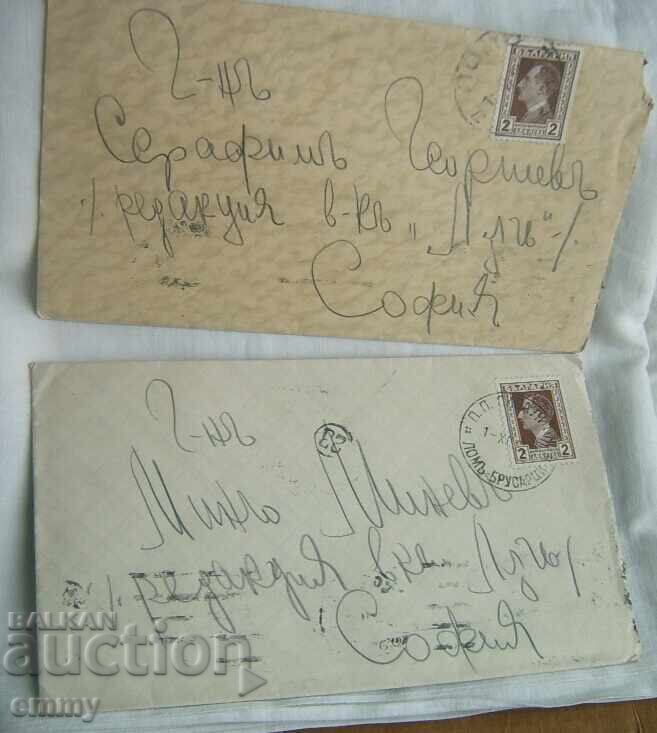 Г-нъ
Серафимъ Георгиевъ
/. редакция в-къ "Лучъ" /.
София
БЪЛГАРИЯ
2 2
Г-нъ
Минчо Миневъ
/. редакция в-къ Лучъ /.
София
82
БЪЛГАРИЯ
2 2
П.П.
1-XI
ЛОМЪ-БРУСАРЦИ
BALKAN
auction
emmy